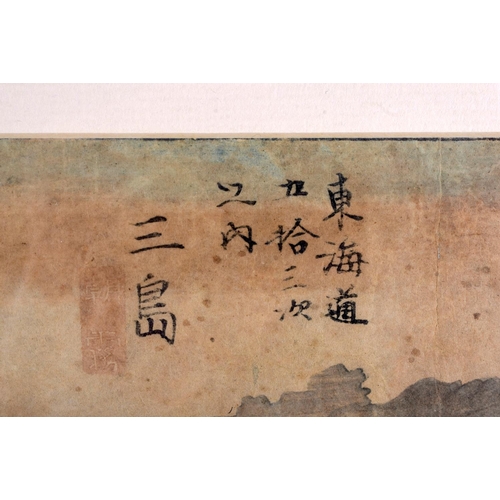 東海道
五拾三次
之内
三島